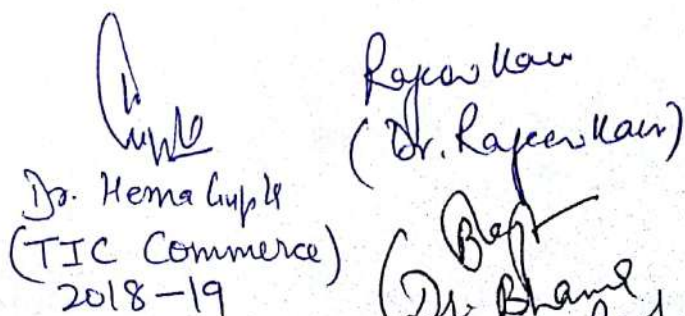 Gupta
Dr. Hema Gupta
(TIC Commerce)
2018-19
Rajeev Kaur
(Dr. Rajeev Kaur)
(Dr. Bhama